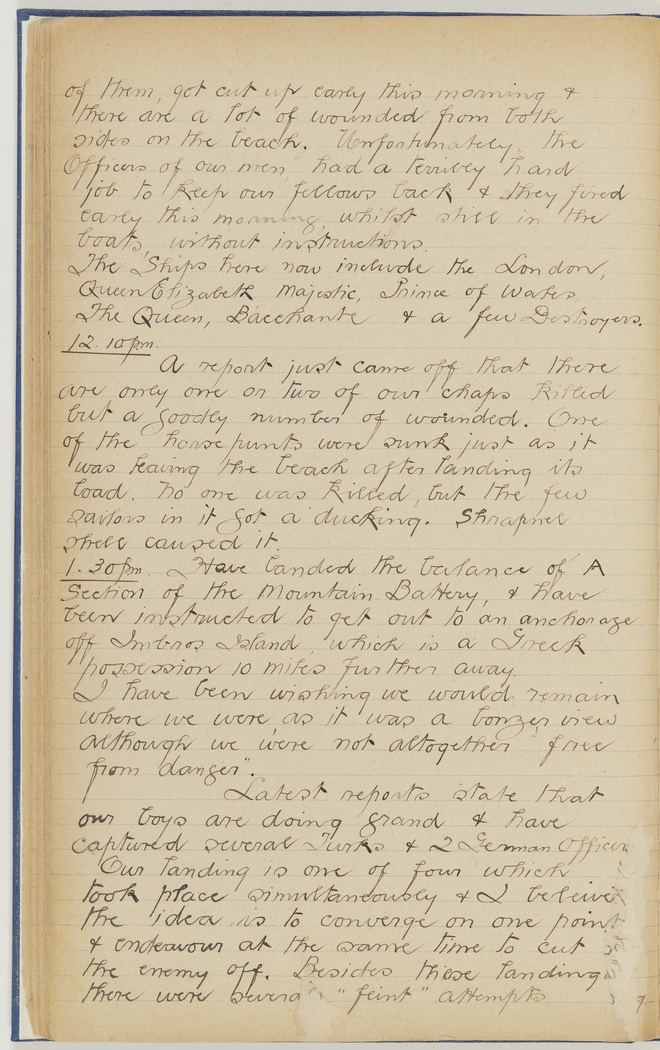 of them, got cut up early this morning &
there are a lot of wounded from both
sides on the beach. Unfortunately, the
Officers of our men, had a terribly hard
job to keep our fellows back & they fired
early this morning, whilst still in the
boats, without instructions.
The Ships here now include the London,
Queen Elizabeth Majestic, Prince of Wales,
The Queen, Bacchante & a few Destroyers.
12.10pm.
A report just came off that there
are only one or two of our chaps killed
but a goodly number of wounded. One
of the horse punts were sunk just as it
was leaving the beach after landing its
load. No one was killed, but the few
sailors in it got a ducking. Shrapnel
shell caused it.
1.30pm. Have landed the balance of A
Section of the Mountain Battery, & have
been instructed to get out to an anchorage
off Imbros Island, which is a Greek
possession 10 miles further away.
I have been wishing we would remain
where we were as it was a bonzer view
although we were not altogether "free
from danger".
Latest reports state that
our boys are doing grand & have
captured several Turks & 2 German Officers
Our landing is one of four which
took place simultaneously & I beleive
the idea is to converge on one point
& endeavour at the same time to cut
the enemy off. Besides these landing
there were several "feint" attempts